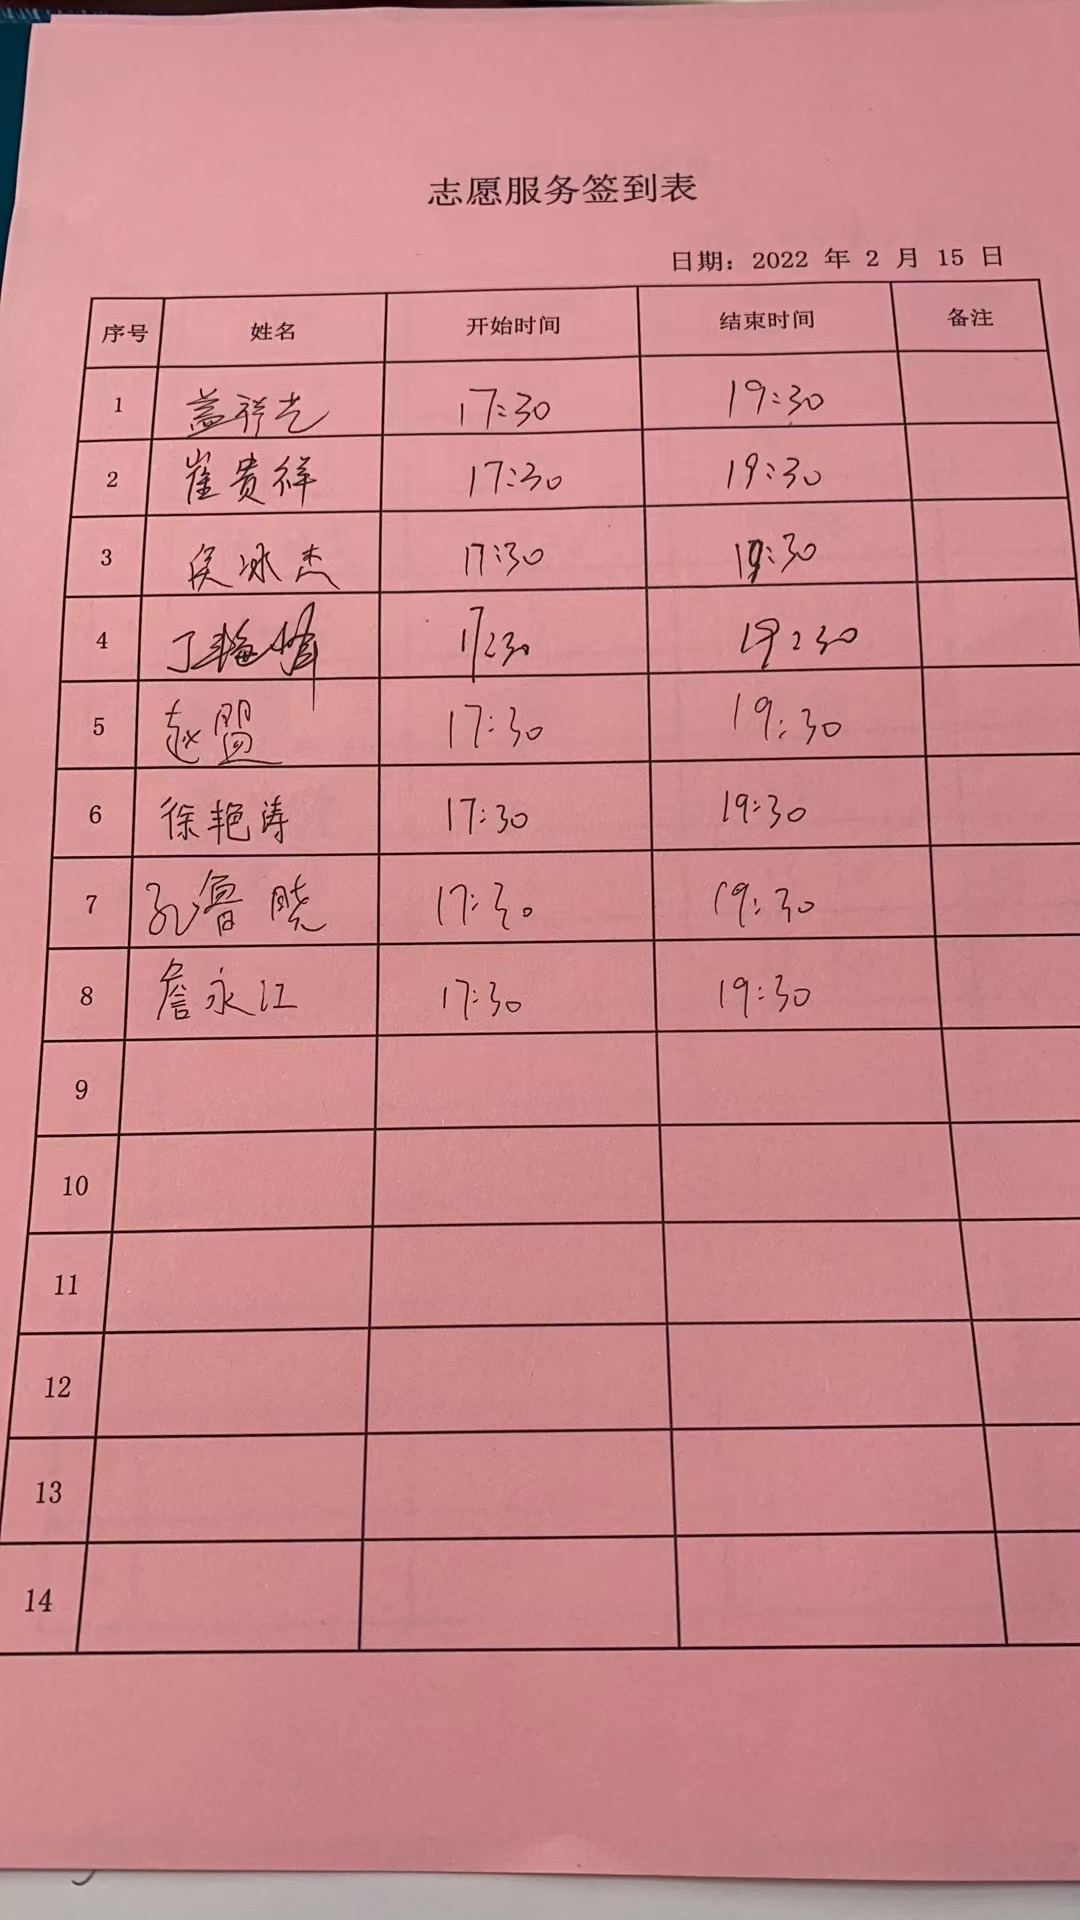 志愿服务签到表
日期：2022 年 2 月 15 日
序号 姓名 开始时间 结束时间 备注
1 盖祥光 17:30 19:30
2 崔贵祥 17:30 19:30
3 侯冰杰 17:30 19:30
4 丁 17:30 19:30
5 赵盟 17:30 19:30
6 徐艳涛 17:30 19:30
7 孔鲁晓 17:30 19:30
8 詹永江 17:30 19:30
9
10
11
12
13
14